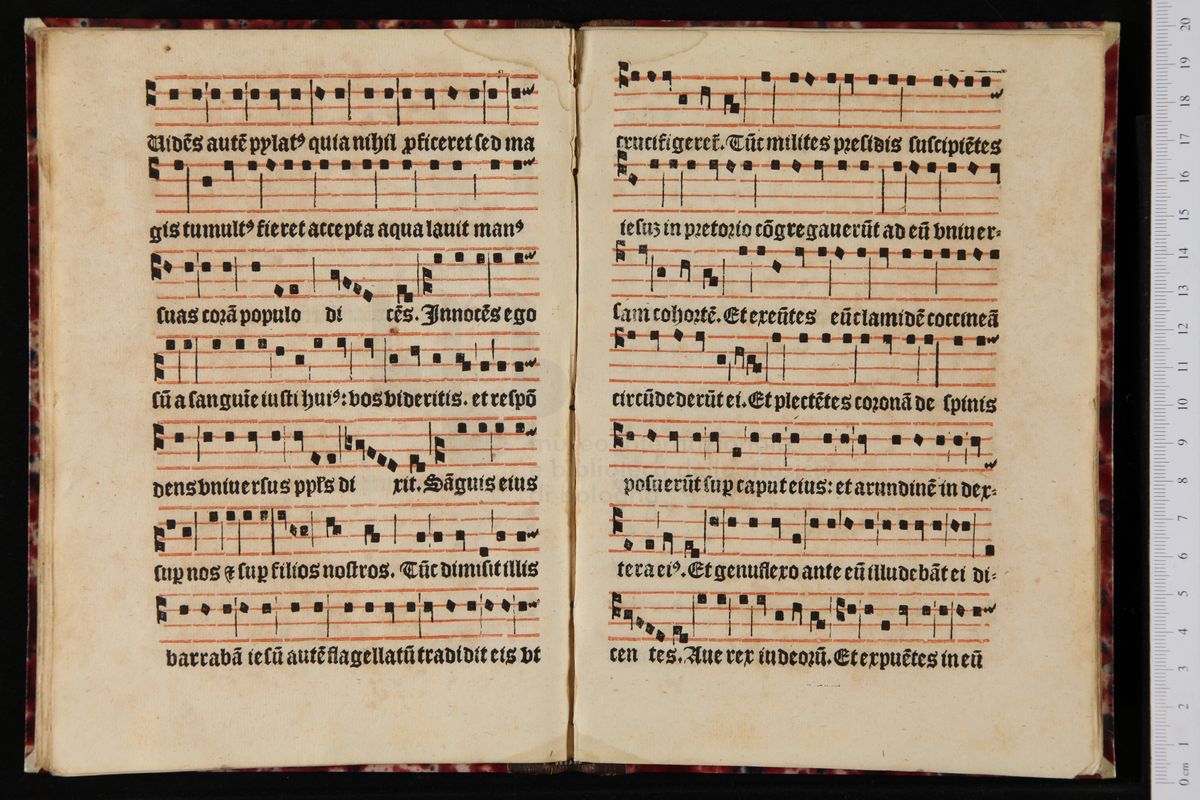 Uidēs autē pylatꝰ quia nihil ꝓficeret sed ma
gis tumultꝰ fieret accepta aqua lauit manꝰ
suas corā populo di cēs. Innocēs ego
sū a sanguīe iusti huiꝰ: vos videritis. et respō
dens vniuersus ppl's di xit. Sāguis eius
suꝑ nos ⁊ suꝑ filios nostros. Tūc dimisit illis
barrabā iesū autē flagellatū tradidit eis vt
crucifigeret̄. Tūc milites presidis suscipiētes
iesuꝫ in pretorio cōgregauerūt ad eū vniuer⸗
sam cohortē. Et exeūtes eū clamidē coccineā
circūdederūt ei. Et plectētes coronā de spinis
posuerūt suꝑ caput eius: et arundinē in dex⸗
tera eiꝰ. Et genuflexo ante eū illudebāt ei di⸗
cen tes. Aue rex iudeorū. Et expuētes in eū
20
19
18
17
16
15
14
13
12
11
10
9
8
7
6
5
4
3
2
1
0 cm